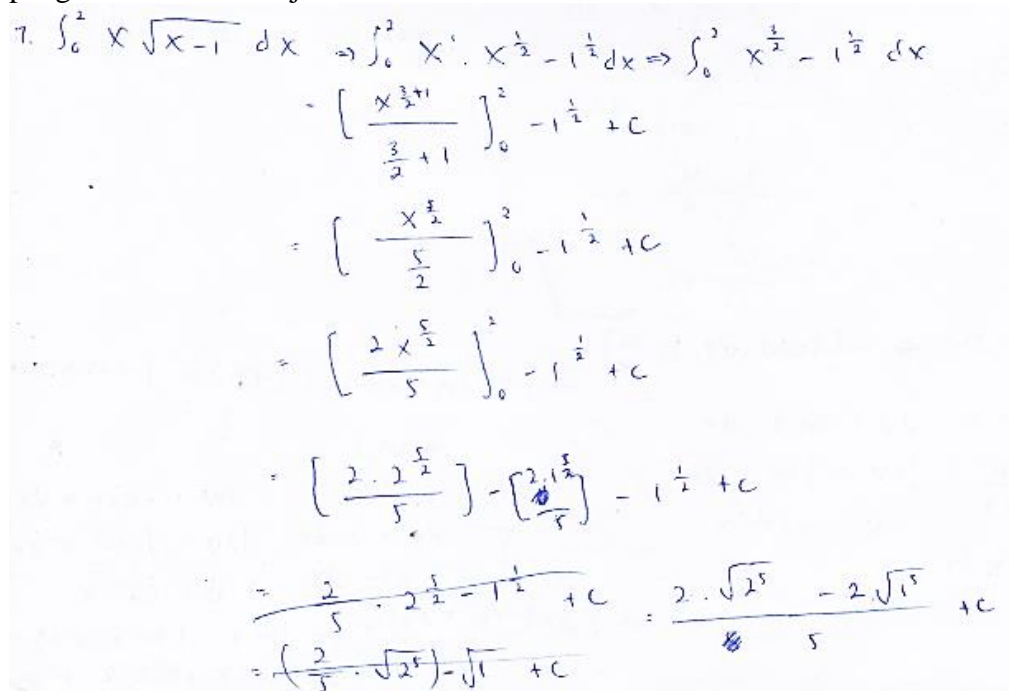 7. ∫₀² x √(x-1) dx ⇒ ∫₀² x¹ . x^(1/2) - 1^(1/2) dx ⇒ ∫₀² x^(3/2) - 1^(1/2) dx
= [ x^(3/2+1) / (3/2 + 1) ]₀² - 1^(1/2) + C
= [ x^(5/2) / (5/2) ]₀² - 1^(1/2) + C
= [ 2x^(5/2) / 5 ]₀² - 1^(1/2) + C
= [ 2 . 2^(5/2) / 5 ] - [ 2.1^(5/2) / 5 ] - 1^(1/2) + C
= 2/5 . 2^(5/2) - 1^(1/2) + C = (2 . √2⁵ - 2.√1⁵) / 5 + C
= (2/5 . √2⁵) - √1 + C